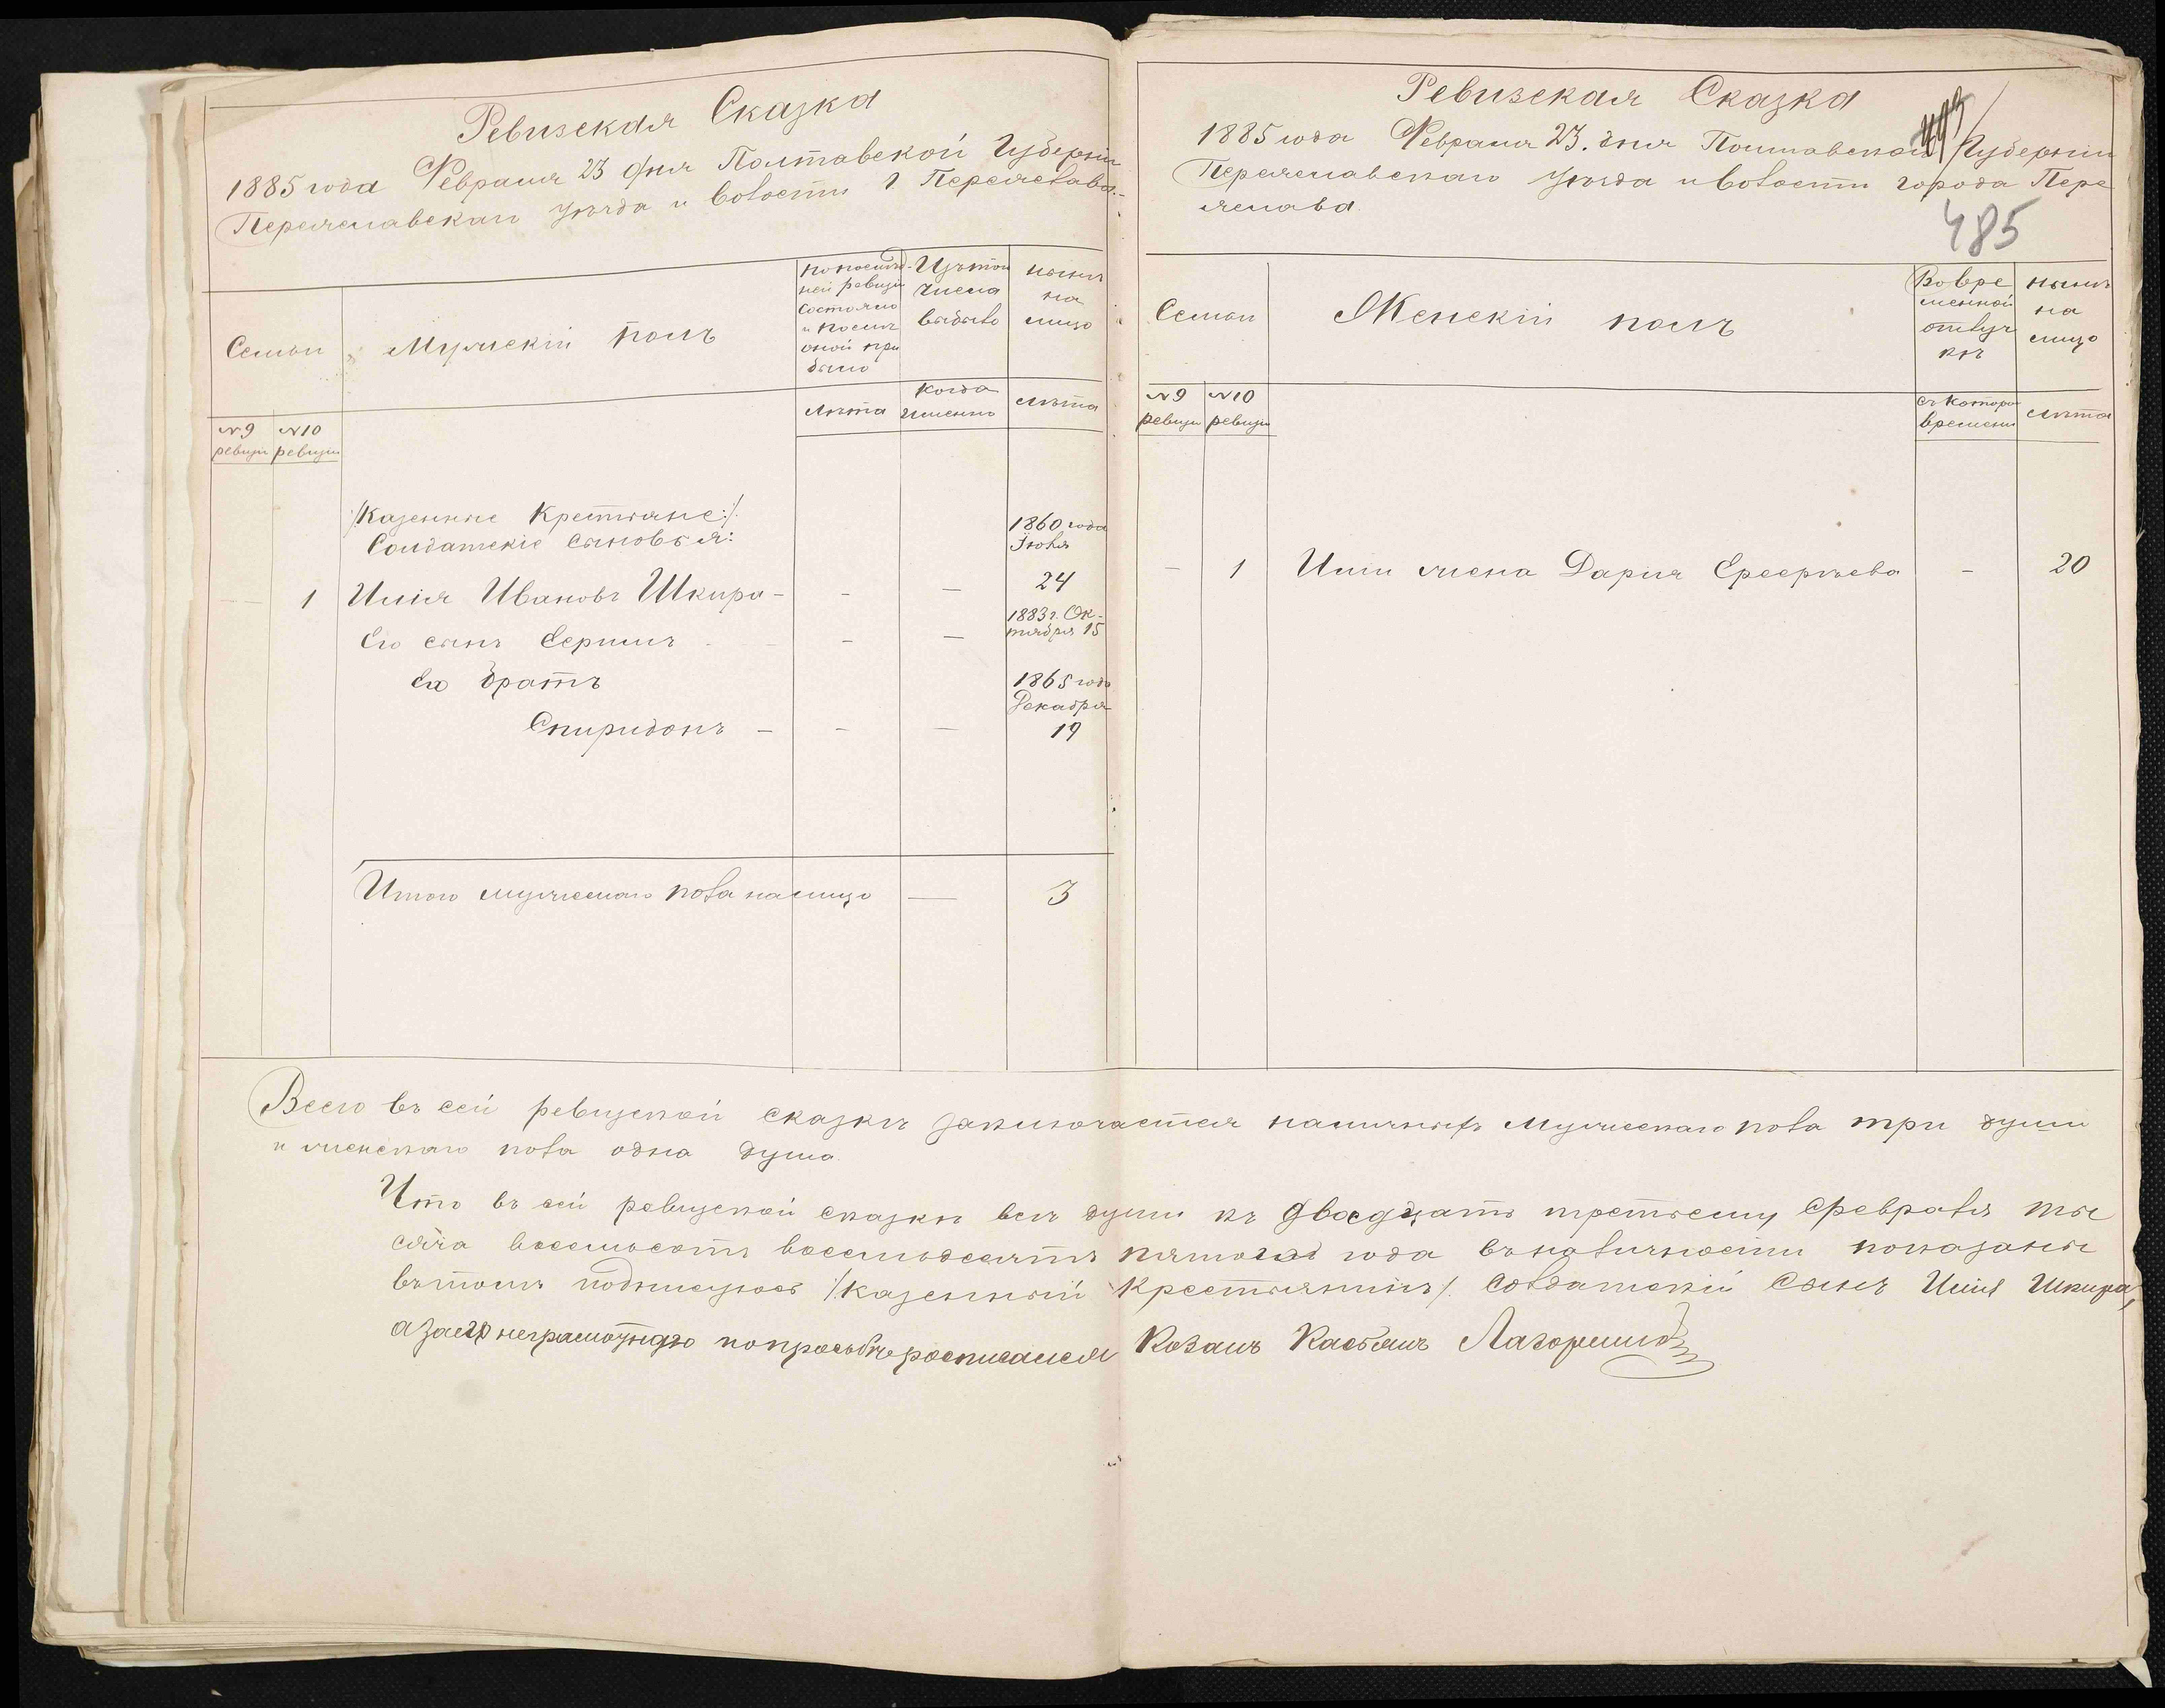 Ревизская Сказка
1885 года Февраля 23 дня Полтавской Губерніи
Переяславскаго уѣзда и волости г. Переяслава.
Семьи
Мужескій полъ
по послѣд-
ней ревизіи
состояло
и послѣ
оной при
было
Изъ того
числа
выбыло
нынѣ
на
лицо
№ 9
ревизіи
№ 10
ревизіи
лѣта
когда
именно
лѣта
/:Казенные Крестьяне:/
Солдатскіе сыновья:
1860 года
Іюля
— 1 Илія Ивановъ Шкира - - — 24
Его сынъ Сергій - — 1883 г. Ок-
тября 15
Ея братъ
1865 года
Декабря
Спиридонъ - - — 19
Итого мужескаго пола налицо — 3
Ревизская Сказка
1885 года Февраля 23. дня Полтавской Губерніи
Переяславскаго уѣзда и волости города Пере
яслава
493
485
Семьи
Женскій полъ
Во вре
менной
отлуч
кѣ
нынѣ
на
лицо
№ 9
ревизіи
№ 10
ревизіи
съ котора
времени
лѣта
— 1 Иліи жена Дарія Ерофѣева - 20
Всего въ сей ревизской сказкѣ заключается наличныхъ мужескаго пола три души
и женскаго пола одна душа
Что въ сей ревизской сказкѣ всѣ души къ двадцать третьему февраля ты
сяча восемьсотъ восемьдесятъ пятого года въ наличности показаны
въ томъ подписуюсь /:казенный крестьянинъ:/ солдатскій сынъ Илія Шкира,
а за его неграмотную по просьбѣ росписался Козакъ Касьянъ